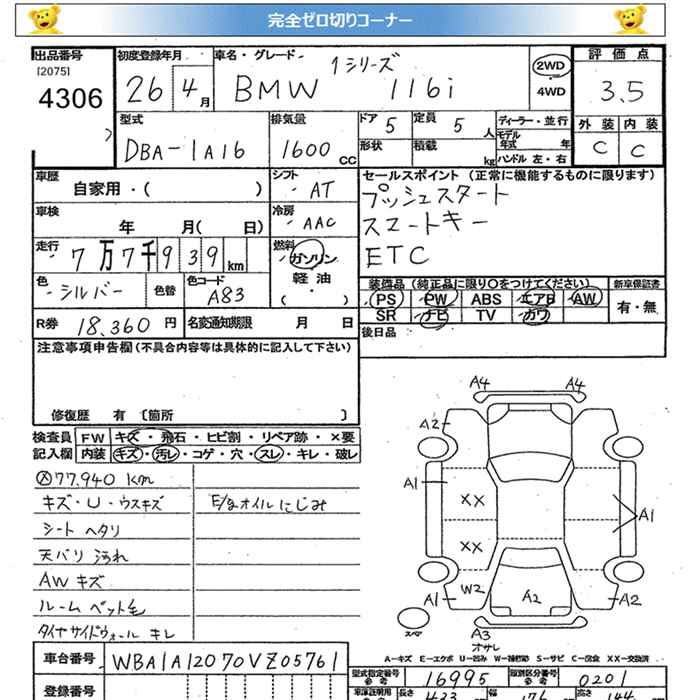 完全ゼロ切りコーナー
出品番号
[2075]
4306
初度登録年月
26 4月
車名・グレード
1シリーズ
BMW 116i
2WD
・
4WD
評価点
3.5
外装 内装
C C
型式
DBA-1A16
排気量
1600 CC
ドア 5
定員 5 人
形状
積載 kg
ディーラー・並行
モデル年式 年
ハンドル 左・右
車歴
自家用・( )
シフト
AT
車検
年 月( 日)
冷房
AAC
走行
7万7千939km
燃料
ガソリン
・
軽油
・( )
色
シルバー
色替
色コード
A83
R券 18,360 円
名変通知期限 月 日
セールスポイント (正常に機能するものに限ります)
プッシュスタート
スマートキー
ETC
装備品 (純正品に限り〇をつけてください)
新車保証書
PS PW ABS エアB AW
SR ナビ TV カワ
有・無
後日品
注意事項申告欄 (不具合内容等は具体的に記入して下さい)
修復歴 有 〔箇所 〕
検査員記入欄
FW キズ・飛石・ヒビ割・リペア跡・×要
内装 キズ・汚レ・コゲ・穴・スレ・キレ・破レ
77,940 km
キズ・U・ウスキズ
E/gオイルにじみ
シート ヘタリ
天バリ 汚れ
AW キズ
ルーム ペット毛
タイヤサイドウォール キレ
A4 A4
A2
A1
XX
A1
XX
W2
A2
A1
A2
スペア
A3
オサレ
A=キズ E=エクボ U=凹み W=補修跡 S=サビ C=腐食 XX=交換済
車台番号 WBA1A12070VZ05761
登録番号
型式指定番号 参考 16995
類別区分番号 参考 0201
長さ 433
幅 176
高さ 144